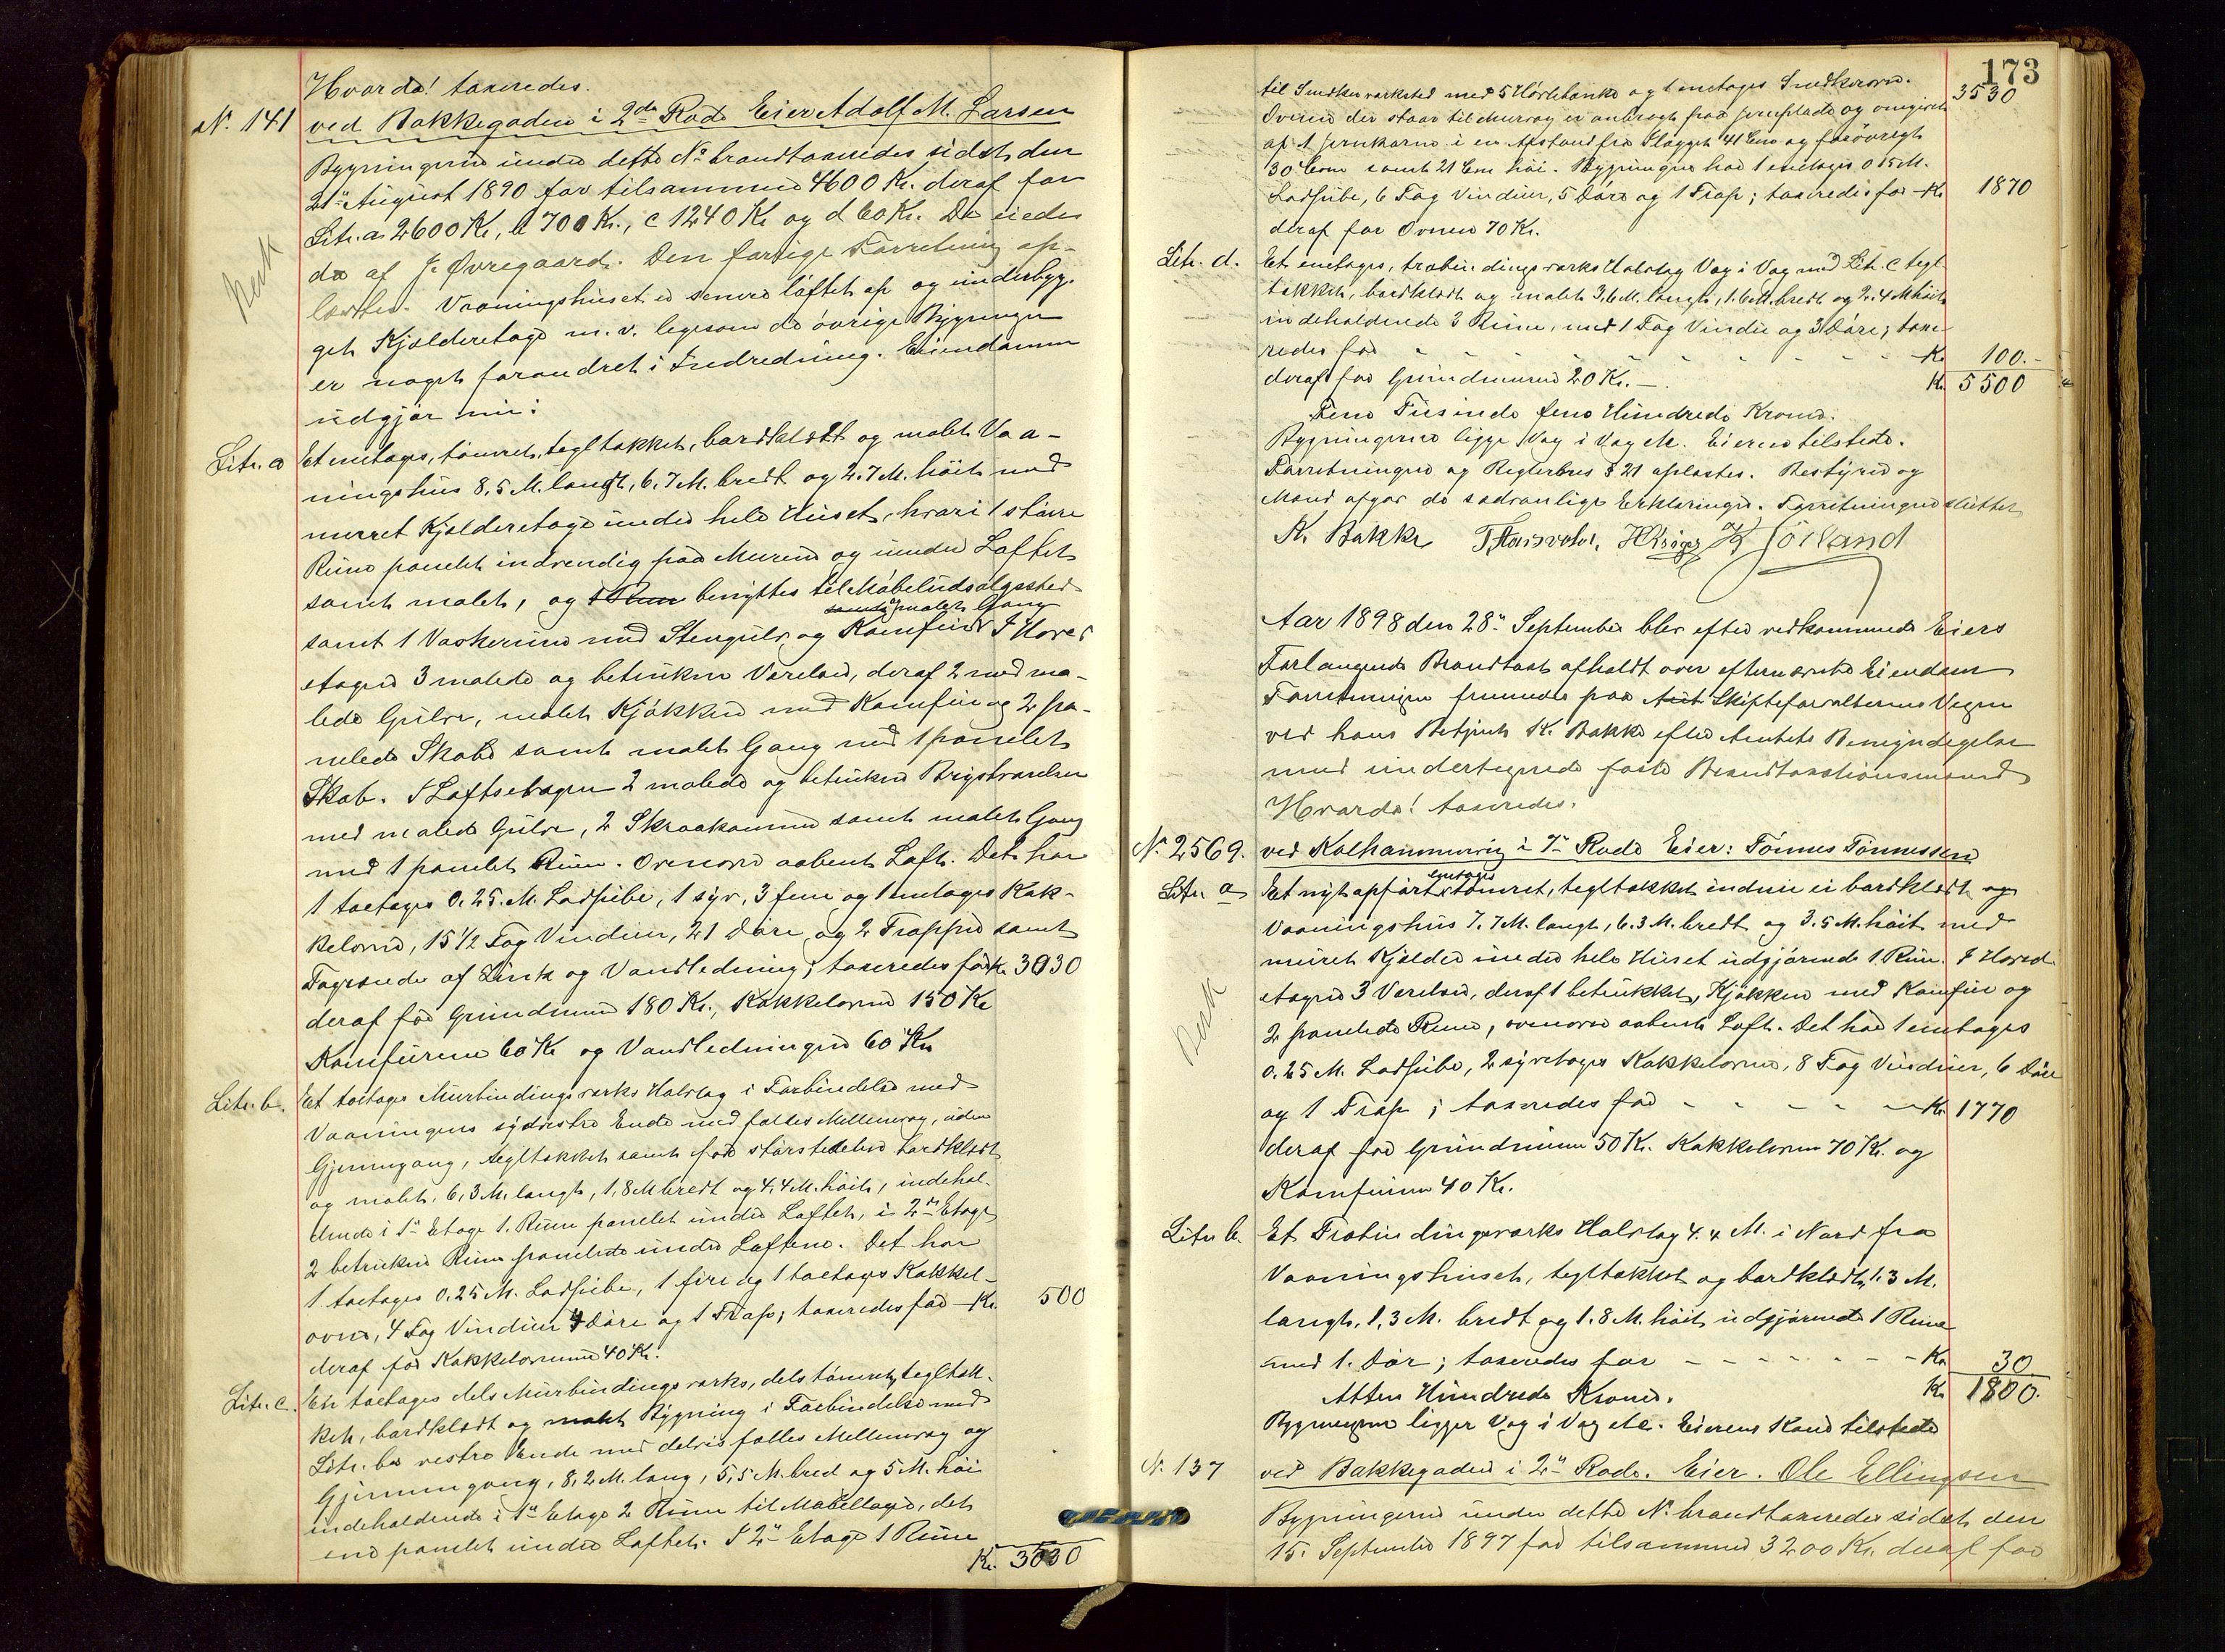 Hvorda! taxeredes.
N. 141 ved Bakkegaden i 2de Rode Eier Adolf M. Larsen
Bygningerne under dette No brandtaxeredes sidst den
21de August 1890 for tilsammen 4600 Kr. deraf for
Litr. a 2600 Kr, b 700 Kr., c 1240 Kr og d 60 Kr. De eiedes
da af J. Øvregaard. Den forrige Forretning op-
læstes. Vaaningshuset er senere løftet op og underbyg-
get Kjelderetage m. v. ligesom de øvrige Bygninger
er noget forandret i Indredning. Eiendommen
udgjør nu:
Litr. a Et enetages, tømret, tegltækket, bordklædt og malet Vaa-
ningshus 8,5 M. langt, 6,7 M. bredt og 2,7 M. høit med
murret Kjelderetage under hele Huset, hvori 1 større
Rum panelet indvendig paa Murene og under Loftet
samt malet, og benyttes til Møbeludsalgssted
samt og malet Gang
samt 1 Vaskerum med Stengulv og Komfur I Hoved
etagen 3 malede og betrukne Værelser, deraf 2 med ma-
lede Gulve, malet Kjøkken med Komfur og 2 pa-
nelede Skabe samt malet Gang med 1 panelet
Skab. I Loftsetagen 2 malede og betrukne Kvistværelser
med malede Gulve, 2 Skraakammer samt malet Gang
med 1 panelet Rum. Ovenover aabent Loft. Det har
1 toetages 0.25 M. Ladpibe, 1 syv, 3 fem og 1 enetages Kak-
kelovne, 15 1/2 Fag Vinduer, 21 Døre og 2 Trapper samt
Tagrender af Zink og Vandledning; taxeredes for Kr. 3030
deraf for Grundmuren 180 Kr., Kakkelovne 150 Kr
Komfurene 60 Kr og Vandledningen 60 Kr
Litr. b. Et toetages Murbindingsværks Halvtag i Forbindelse med
Vaaningens sydvestre Ende med fælles Mellemvæg, uden
Gjennemgang, tegltækket samt for størstedelen bordklædt
og malet, 6,3 M. langt, 1,8 M bredt og 4,4 M. høit, indehol-
dende i 1ste Etage 1. Rum panelet under Loftet, i 2den Etage
2 betrukne Rum panelede under Loftene. Det har
1 toetages 0.25 M. Ladpibe, 1 fire og 1 toetages Kakkel-
ovne, 4 Fag Vinduer 4 Døre og 1 Trap; taxeredes for - Kr. 500
deraf for Kakkelovnene 40 Kr.
Litr. c. En toetages dels Murbindingsværks, dels tømret, tegltæk-
ket, bordklædt og malet Bygning i Forbindelse med
Litr. b's vestre Ende med delvis fælles Mellemvæg og
Gjennemgang, 8,2 M. lang, 5,5 M. bred og 5 M. høi
indeholdende i 1ste Etage 2 Rum til Møbellager, det
ene panelet under Loftet. I 2den Etage 1 Rum
Kr. 3030
173
til Snedkerværksted med 5 Høvlebænke og 1 enetages Snedkerovn. 3530
Ovnen der staar til Murvæg er anbragt paa Jernplade og omgivet
af 1 Jernkarm i en Afstand fra Flagget 41 Cm og forøvrigt
30 Cm samt 21 Cm høi. Bygningen har 1 enetages 0.15 M.
Ladpibe, 6 Fag Vinduer, 5 Døre og 1 Trap; taxeredes for - Kr 1870
deraf for Ovnen 70 Kr.
Litr. d. Et enetages, træbindingsværks Halvtag Væg i Væg med Litr. c tegl-
tækket, bordklædt og malet 3,6 M. langt, 1.6 M. bredt og 2.4 M høit
indeholdende 3 Rum, med 1 Fag Vindue og 3 Døre; taxe-
redes for - - - - - - Kr 100.-
deraf for Grundmuren 20 Kr. - Kr 5500
Fem Tusinde fem Hundrede Kroner.
Bygningerne ligge Væg i Væg etc. Eieren tilstede.
Forretningen og Reglernes § 21 oplæstes. Bestyrer og
Mænd afgav de sædvanlige Erklæringer. Forretningen sluttet
K. Bakke
Aar 1898 den 28de September blev efter vedkommende Eiers
Forlangende Brandtaxt afholdt over efternævnte Eiendom
Forretningen fremmedes paa Skifteforvalterens Vegne
ved hans Betjent K. Bakke efter Amtets Bemyndigelse
med undertegnede faste Brandtaxationsmænd
Hvorda! taxeredes.
N. 2569. ved Kolhammervig i 7de Rode Eier: Tønnes Tønnessen
enetages
Litr. a Et nyt opført tømret, tegltækket endnu ei bordklædt og
Vaaningshus 7.7 M. langt, 6.3 M. bredt og 3.5 M. høit med
muret Kjelder under hele Huset udgjørende 1. Rum. I Hoved
etagen 3 Værelser, deraf 1 betrukket, Kjøkken med Komfur og
2 panelede Rum, ovenover aabent Loft. Det har 1 enetages
0.25 M. Ladpibe, 2 syvetages Kakkelovne, 8 Fag Vinduer, 6 Døre
og 1 Trap; taxeredes for - - - - - Kr 1770
deraf for Grundmuren 50 Kr. Kakkelovnene 70 Kr. og
Komfuren 40 Kr.
Litr b. Et Træbindingsværks Halvtag 4.4 M. i Nord fra
Vaaningshuset, tegltækket og bordklædt, 1.3 M.
langt, 1,3 M. bredt og 1.8 M. høit udgjørende 1 Rum
med 1. Dør; taxeredes for - - - - - Kr 30
Atten Hundrede Kroner. Kr 1800.
Bygningerne ligger Væg i Væg etc. Eierens Kone tilstede
N. 137 ved Bakkegaden i 2den Rode. Eier. Ole Ellingsen
Bygningerne under dette No brandtaxeredes sidst den
15. September 1897 for tilsammen 3200 Kr. deraf for